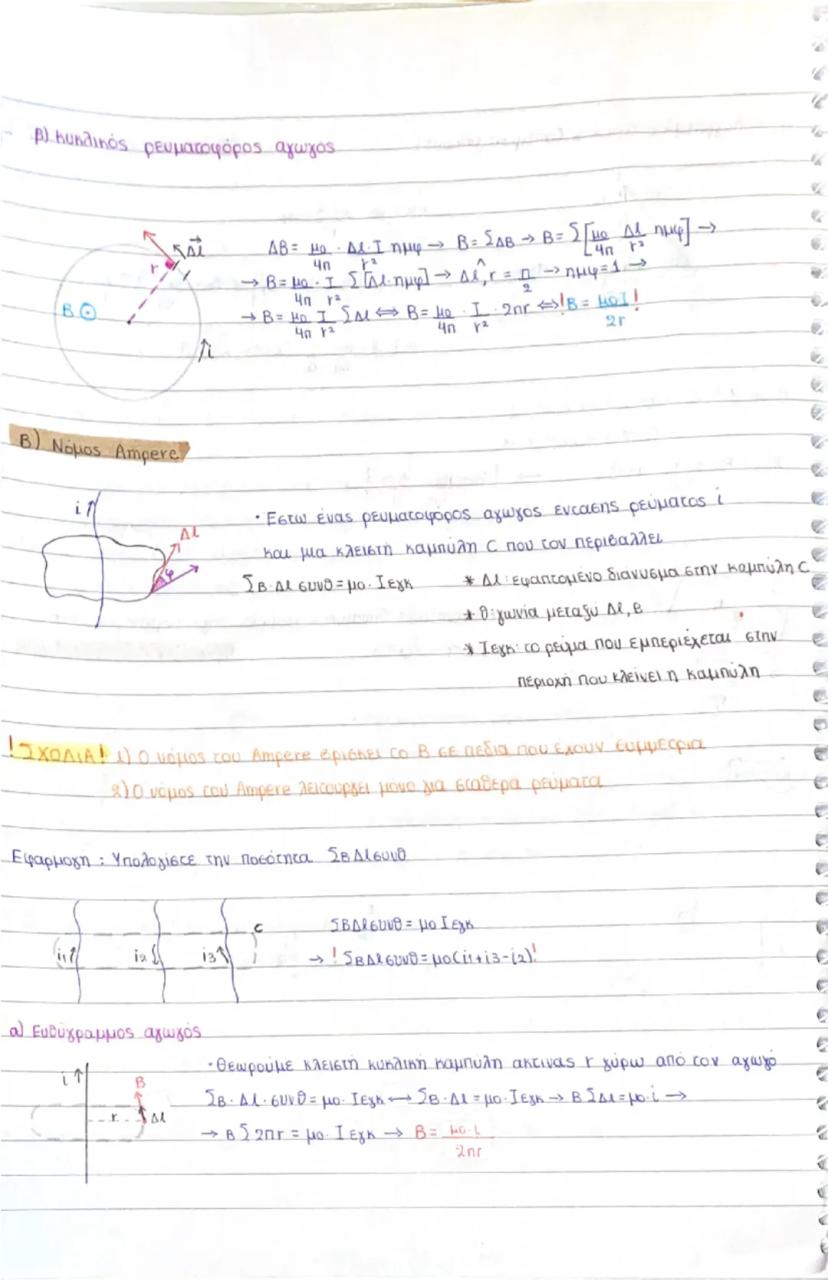 β) κυκλικός ρευματοφόρος αγωγός
ΔB = μο/4π · Δl·I/r² ημφ → B = ΣΔB → B = Σ[μο/4π Δl/r² ημφ] →
→ B = μο/4π · I/r² Σ[Δl·ημφ] → Δl^,r = π/2 → ημφ = 1 →
→ B = μο/4π I/r² ΣΔl ⟺ B = μο/4π · I/r² · 2πr ⟺ ! B = μοI/2r !
Δl
r
B ⊙
i
B) Νόμος Ampere
i
Δl
φ
· Εστω ένας ρευματοφόρος αγωγος εντασης ρεύματος i
και μια κλειστή καμπύλη C που τον περιβαλλει
ΣB·Δl συνθ = μο·Ιεγκ
* Δl: εφαπτομένο διανυσμα στην καμπύλη C
* θ: γωνία μεταξύ Δl, B
* Ιεγκ: το ρεύμα που εμπεριέχεται στην
περιοχή που κλείνει η καμπύλη
! ΣΧΟΛΙΑ! 1) Ο νόμος του Ampere βρισκει το B σε πεδια που εχουν συμμετρια
2) Ο νόμος του Ampere λειτουργει μονο για σταθερα ρευματα
Εφαρμογη : Υπολογίστε την ποσότητα ΣBΔlσυνθ
i1
i2
i3
C
ΣBΔlσυνθ = μο Ιεγκ
→ ! ΣBΔlσυνθ = μο(i1+i3-i2)!
α) Ευθύγραμμος αγωγός
i
B
r
Δl
· Θεωρούμε κλειστή κυκλική καμπυλη ακτινας r γύρω από τον αγωγό
ΣB·Δl·συνθ = μο·Ιεγκ ⟷ ΣB·Δl = μο·Ιεγκ → BΣΔl = μο·i →
→ BΣ2πr = μο·Ιεγκ → B = μο·i/2πr